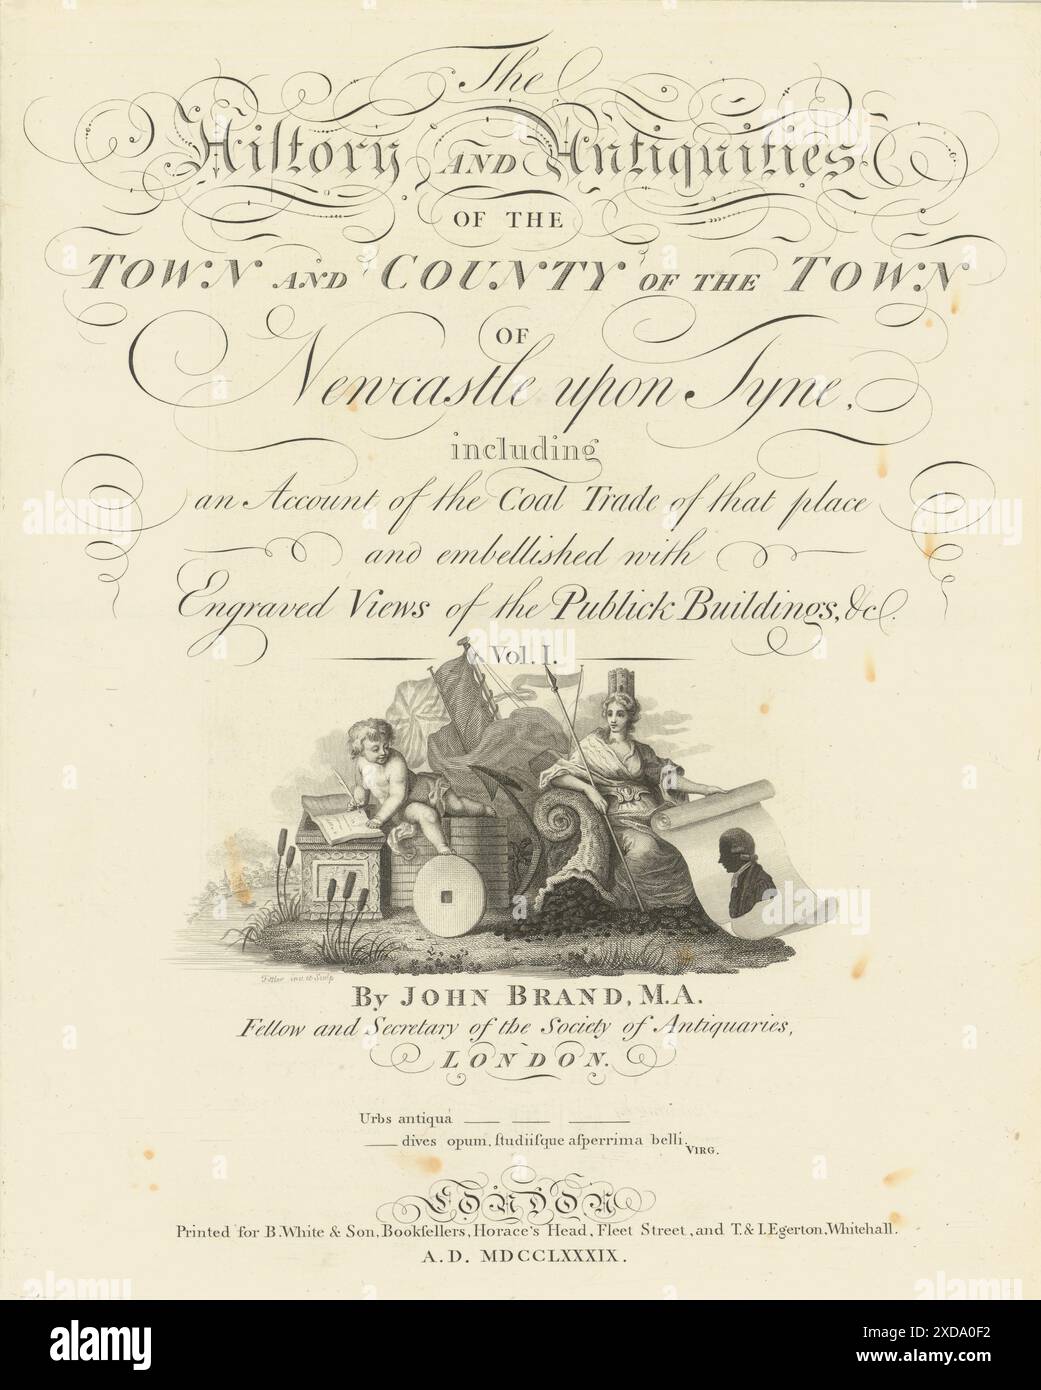 The
Hiſtory AND Antiquities
OF THE
TOWN AND COUNTY OF THE TOWN
OF
Newcastle upon Tyne,
including
an Account of the Coal Trade of that place
and embellished with
Engraved Views of the Publick Buildings, &c.
Vol. I.
Fittler inv. & Sculp
By JOHN BRAND, M.A.
Fellow and Secretary of the Society of Antiquaries,
LONDON.
Urbs antiqua
dives opum, ſtudiiſque aſperrima belli.
VIRG.
LONDON
Printed for B. White & Son, Bookſellers, Horace's Head, Fleet Street, and T. & I. Egerton, Whitehall.
A.D. MDCCLXXXIX.
alamy
Image ID: 2XDA0F2
www.alamy.com